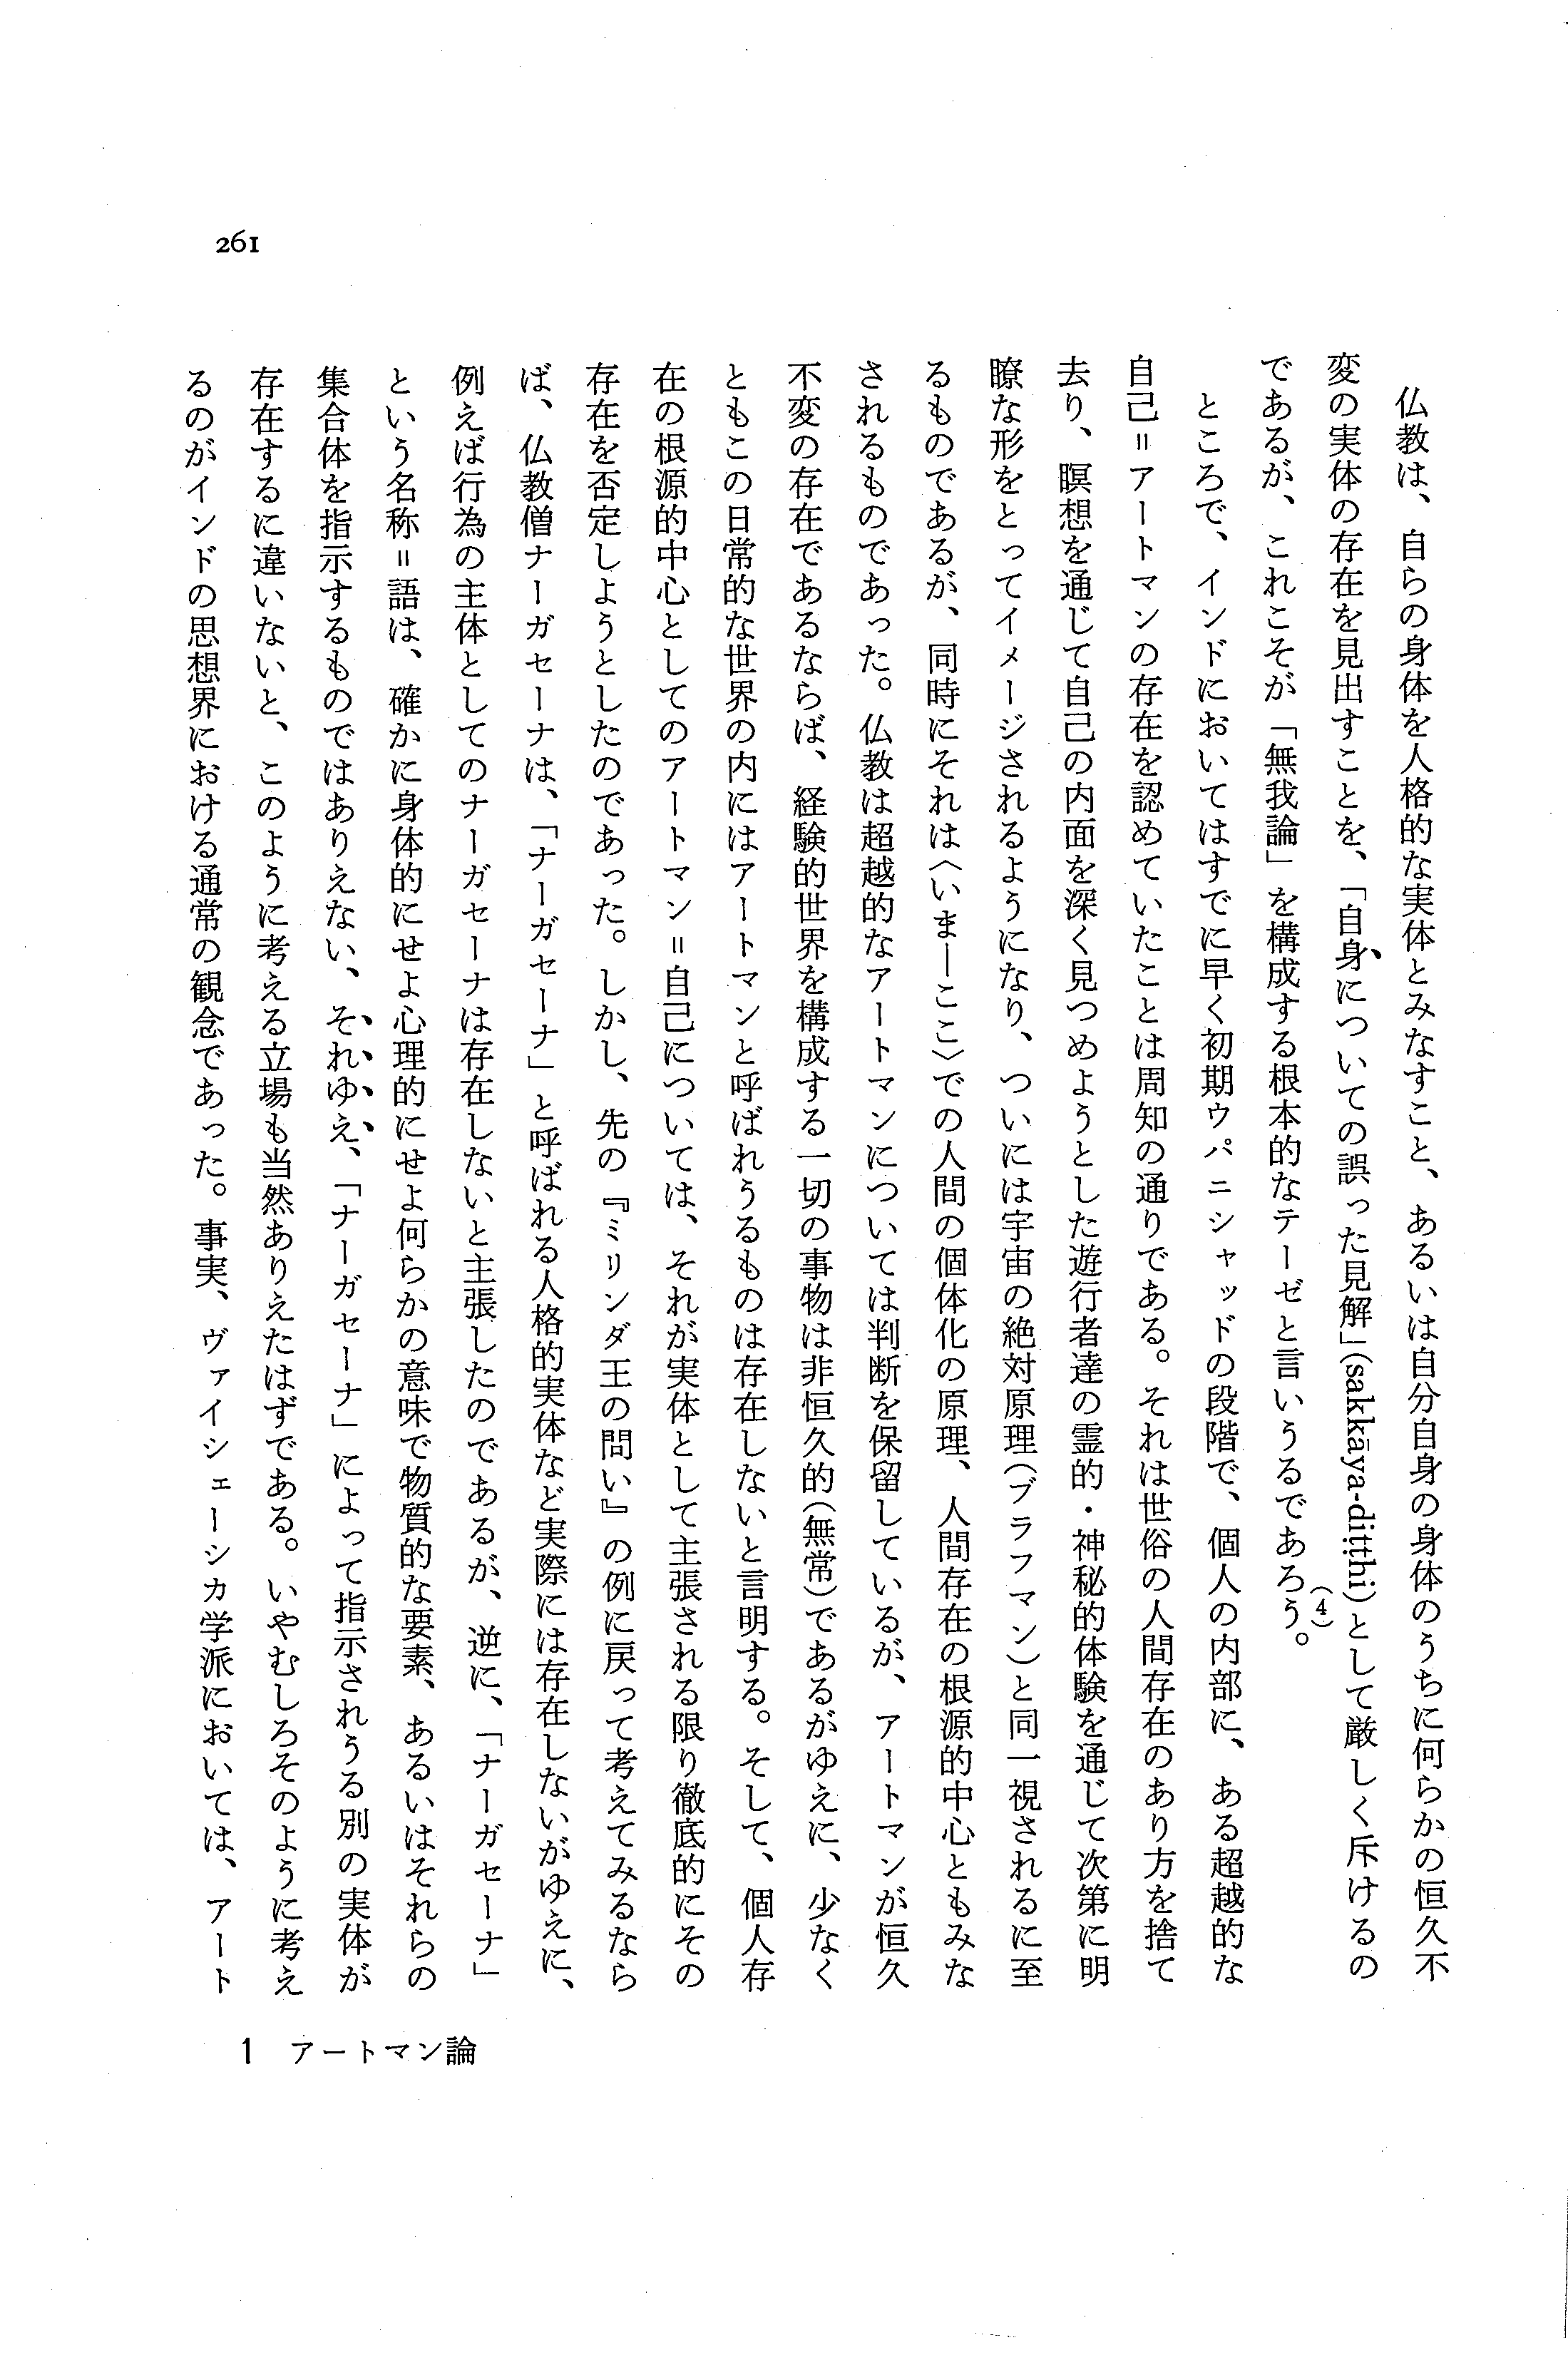 仏教は、自らの身体を人格的な実体とみなすこと、あるいは自分自身の身体のうちに何らかの恒久不
変の実体の存在を見出すことを、「自身についての誤った見解」(sakkāya-diṭṭhi)として厳しく斥けるの
であるが、これこそが「無我論」を構成する根本的なテーゼと言いうるであろう。(4)
ところで、インドにおいてはすでに早く初期ウパニシャッドの段階で、個人の内部に、ある超越的な
自己＝アートマンの存在を認めていたことは周知の通りである。それは世俗の人間存在のあり方を捨て
去り、瞑想を通じて自己の内面を深く見つめようとした遊行者達の霊的・神秘的体験を通じて次第に明
瞭な形をとってイメージされるようになり、ついには宇宙の絶対原理(ブラフマン)と同一視されるに至
るものであるが、同時にそれは〈いま—ここ〉での人間の個体化の原理、人間存在の根源的中心ともみな
されるものであった。仏教は超越的なアートマンについては判断を保留しているが、アートマンが恒久
不変の存在であるならば、経験的世界を構成する一切の事物は非恒久的(無常)であるがゆえに、少なく
ともこの日常的な世界の内にはアートマンと呼ばれうるものは存在しないと言明する。そして、個人存
在の根源的中心としてのアートマン＝自己については、それが実体として主張される限り徹底的にその
存在を否定しようとしたのであった。しかし、先の『ミリンダ王の問い』の例に戻って考えてみるなら
ば、仏教僧ナーガセーナは、「ナーガセーナ」と呼ばれる人格的実体など実際には存在しないがゆえに、
例えば行為の主体としてのナーガセーナは存在しないと主張したのであるが、逆に、「ナーガセーナ」
という名称＝語は、確かに身体的にせよ心理的にせよ何らかの意味で物質的な要素、あるいはそれらの
集合体を指示するものではありえない、それゆえ、「ナーガセーナ」によって指示されうる別の実体が
存在するに違いないと、このように考える立場も当然ありえたはずである。いやむしろそのように考え
るのがインドの思想界における通常の観念であった。事実、ヴァイシェーシカ学派においては、アート
1 アートマン論
261